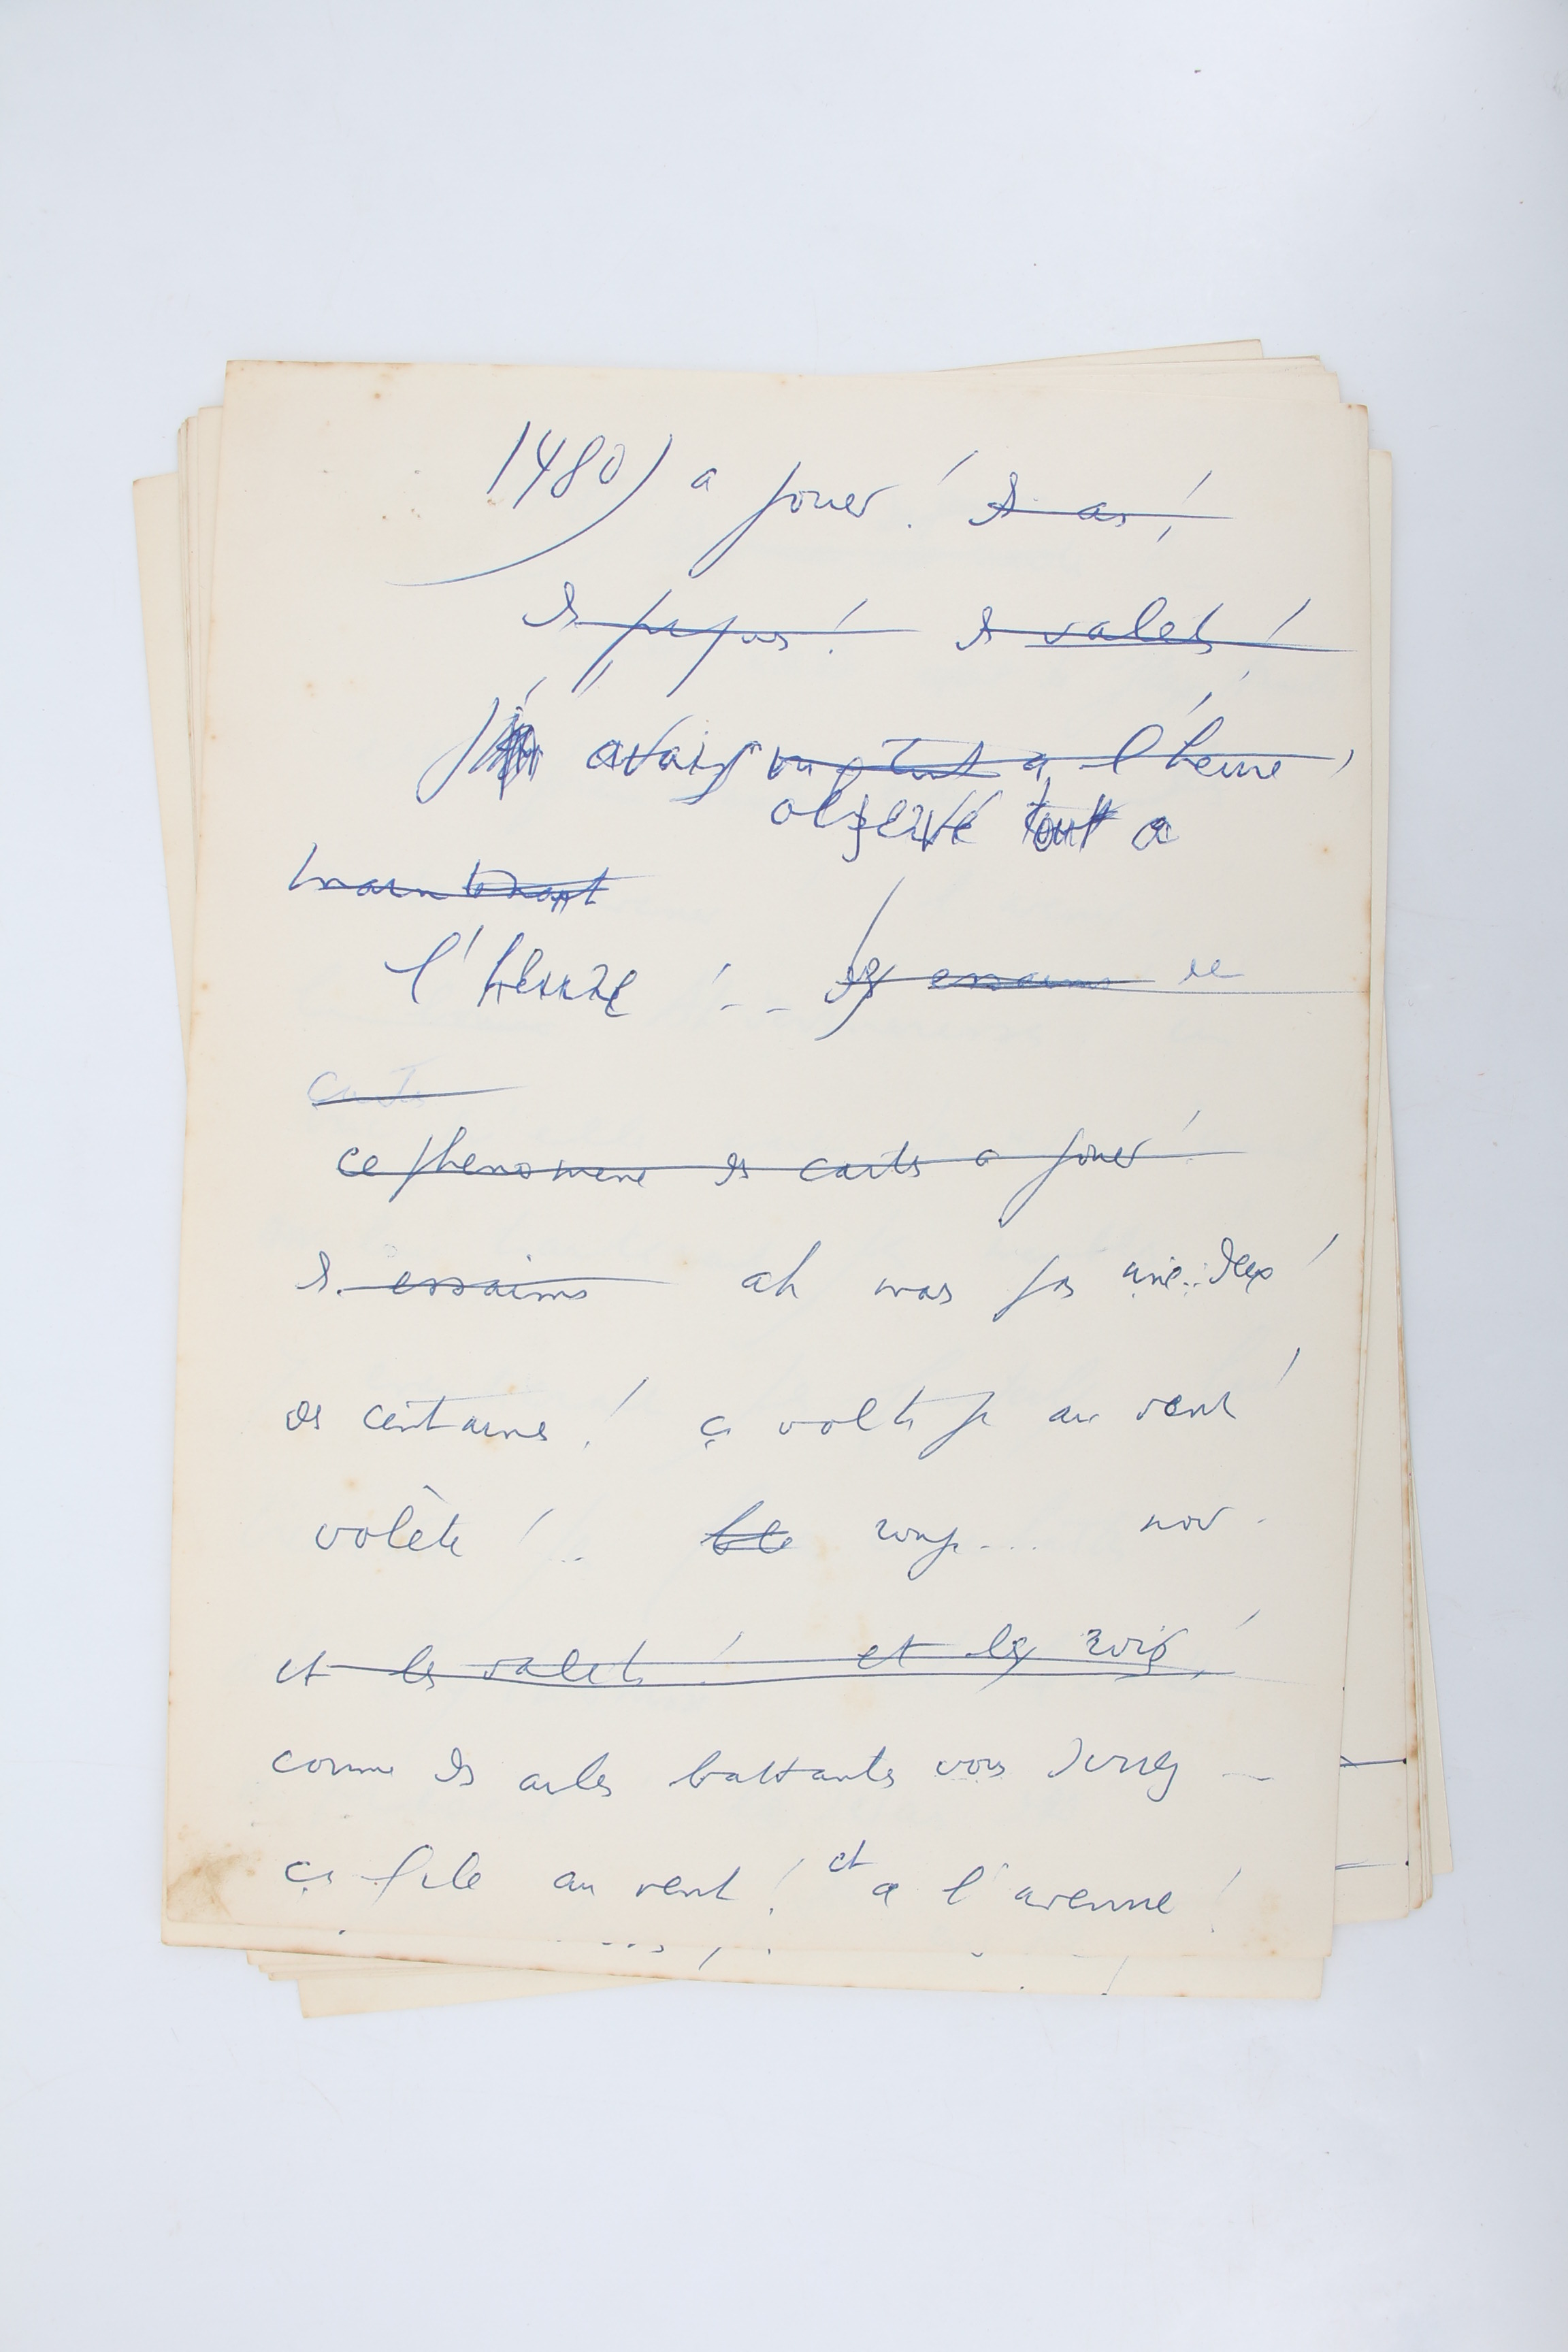 1480) a jouer ! des as !
des pipes ! des valets !
J' avais vu tout a l'heure
observé tout a
maintenant
l'heure ! . . des essaims de
cartes
ce phenomene des cartes a jouer !
des essaims ah mais pas une.. deux !
des centaines ! ça voltige au vent !
volète ! .. rouge ... noir .
et les valets ! et les rois !
comme des ailes battantes vous diriez –
ça file au vent ! et a l'avenue !